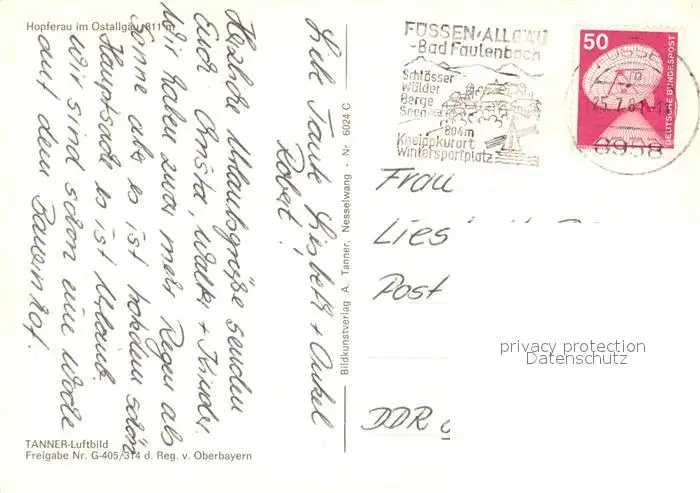 Hopferau im Ostallgäu, 811 m
Lieb Tante Lisbeth + Onkel
Robert!
Herzliche Urlaubsgrüße senden
Euch Christa, Walter + Kinder.
Wir haben zwar mehr Regen als
Sonne aber es ist trotzdem schön
Hauptsache es ist Urlaub.
Wir sind schon eine Woche
auf dem Bauernhof.
TANNER-Luftbild
Freigabe Nr. G-405/314 d. Reg. v. Oberbayern
Bildkunstverlag A. Tanner, Nesselwang · Nr. 6024 C
FÜSSEN/ALLGÄU
-Bad Faulenbach
Schlösser
Wälder
Berge
Seen
804m
Kneippkurort
Wintersportplatz
50
DEUTSCHE BUNDESPOST
8958
Frau
Lies
Post
DDR
privacy protection
Datenschutz